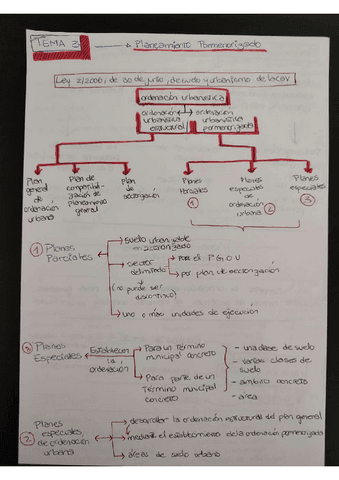 TEMA 3 → Planeamiento Pormenorizado
Ley 2/2006, de 30 de junio, de suelo y urbanismo de la CAV
ordenación urbanística
ordenación urbanística estructural
ordenación urbanística pormenorizada
Plan general de ordenación urbana
Plan de compatibilización de planeamiento general
Plan de sectorización
Planes Parciales
①
Planes especiales de ordenación urbana ②
Planes especiales
③
① Planes Parciales
suelo urbanizable sectorizado
sector delimitado
por el P.G.O.U
por plan de sectorización
(no puede ser discontinuo)
uno o más unidades de ejecución
③ Planes Especiales
Establecen la ordenación
Para un término municipal concreto
Para parte de un término municipal concreto
- una clase de suelo
- varias clases de suelo
- ámbito concreto
- área
② Planes especiales de ordenación urbana
desarrollar la ordenación estructural del plan general
mediante el establecimiento de la ordenación pormenorizada
áreas de suelo urbano